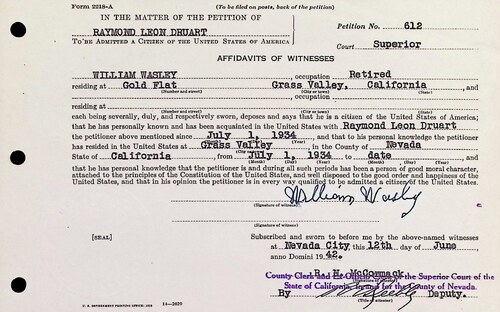 Form 2218-A (To be filed on posts, back of the petition)
IN THE MATTER OF THE PETITION OF
RAYMOND LEON DRUART
TO BE ADMITTED A CITIZEN OF THE UNITED STATES OF AMERICA
Petition No. 612
Court Superior
AFFIDAVITS OF WITNESSES
WILLIAM WASLEY, occupation Retired
residing at Gold Flat Grass Valley, California, and
(Number and street) (City or town) (State)
, occupation
residing at
(Number and street) (City or town) (State)
each being severally, duly, and respectively sworn, deposes and says that he is a citizen of the United States of America;
that he has personally known and has been acquainted in the United States with Raymond Leon Druart
the petitioner above mentioned since July 1, 1934, and that to his personal knowledge the petitioner
(Month) (Day) (Year)
has resided in the United States at Grass Valley in the County of Nevada
State of California, from July 1, 1934 to date, and
(Month) (Day) (Year) (Month) (Day) (Year)
that he has personal knowledge that the petitioner is and during all such periods has been a person of good moral character,
attached to the principles of the Constitution of the United States, and well disposed to the good order and happiness of the
United States, and that in his opinion the petitioner is in every way qualified to be admitted a citizen of the United States.
William Wasley
(Signature of witness)
(Signature of witness)
[SEAL]
Subscribed and sworn to before me by the above-named witnesses
at Nevada City, this 12th day of June,
anno Domini 1942.
R. N. McCormack
County Clerk and Ex-Officio Clerk of the Superior Court of the
State of California, in and for the County of Nevada.
By Deputy.
(Title of attester)
U. S. GOVERNMENT PRINTING OFFICE